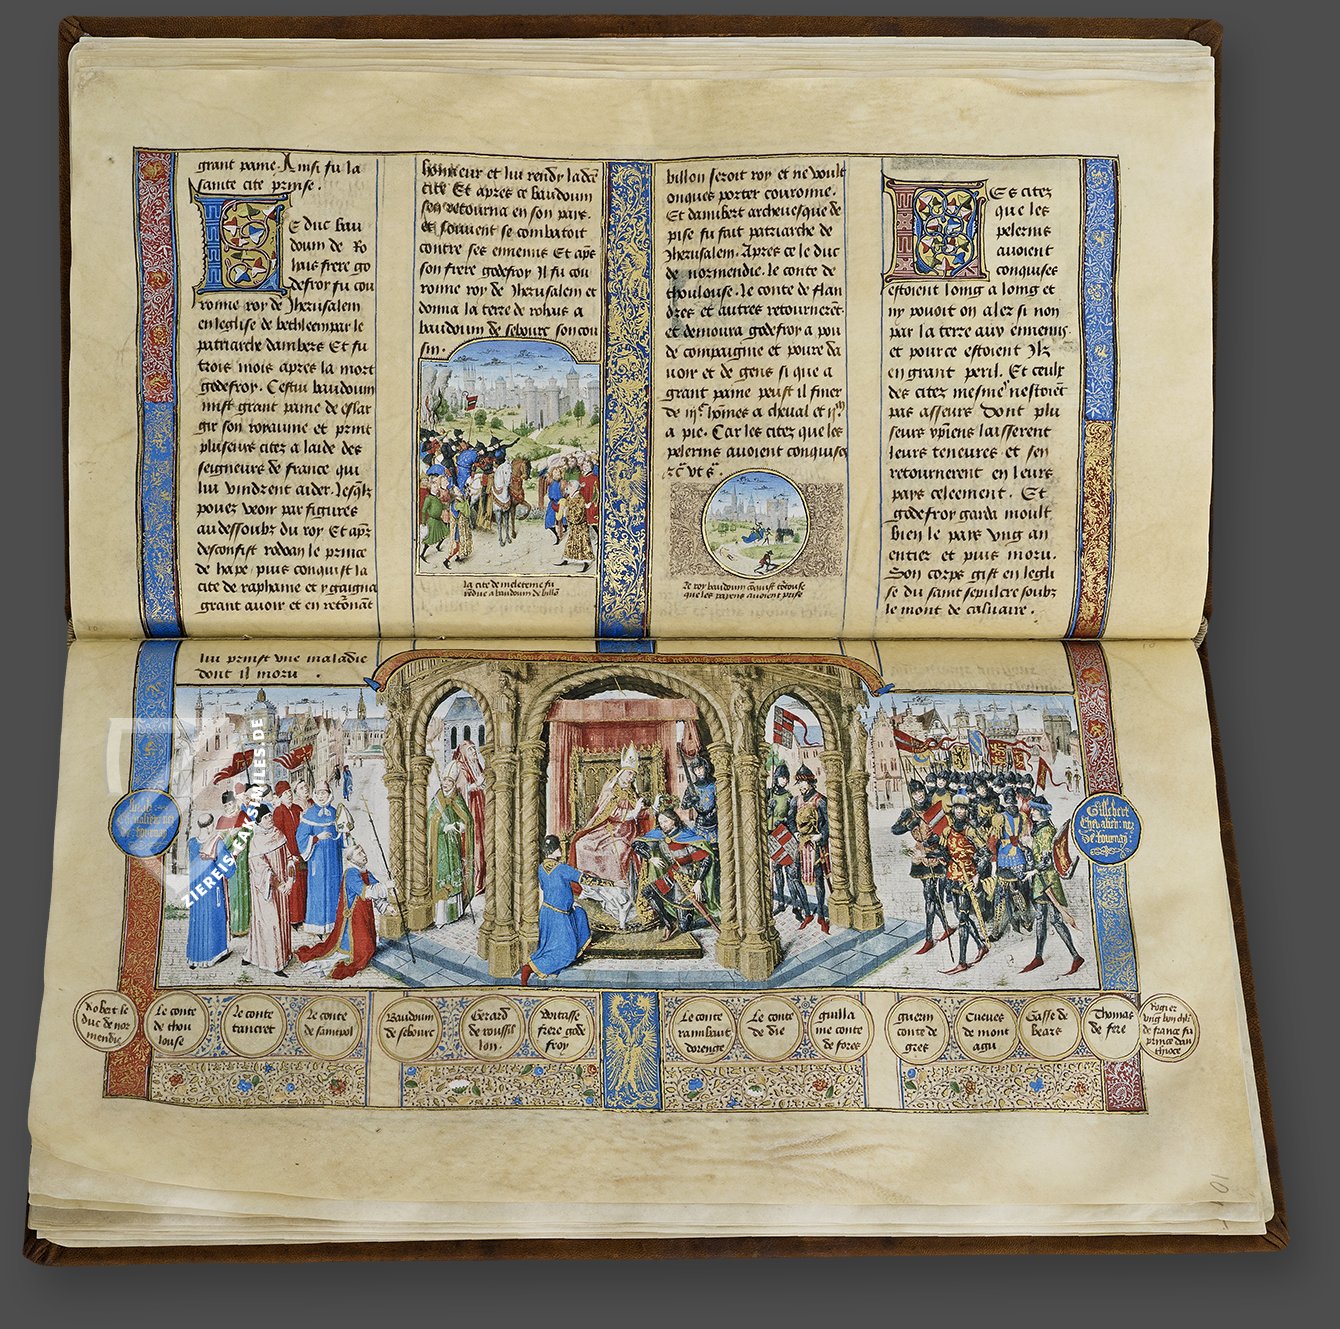 grant paine. Ainsi fu la
sainte cite prinse.
Le duc bau
doum de Ro
hais frere go
defroy fu cou
ronne roy de Jherusalem
en leglise de bethleem par le
patriarche dambert Et fu
trois mois apres la mort
godefroy. Cestui baudoum
mist grant paine de eslar
gir son royaume et print
plusieurs citez a laide des
seigneurs de france qui
lui vindrent aider.
pouez veoir par figures
au dessoubz du roy Et apz
desconfist rodoan le prince
de hape puis conquist la
cite de raphanie et y gaigna
grant avoir et en retonant
honneur et lui rendy ladce
cite Et apres ce baudoum
sen retourna en son pais.
et souvent se combatoit
contre ses ennemis Et apz
son frere godefroy Il fu cou
ronne roy de Jherusalem et
donna la terre de rohais a
baudoum de sebourc son cou
sin.
la cite de meleteme fu
rendue a baudoum de billo
billon seroit roy et ne voult
onques porter couronne.
Et dambert archevesque de
pise fu fait patriarche de
Jherusalem. Apres ce le duc
de normendie. le conte de
thoulouse. Le conte de flan
dres et autres retournerent
et demoura godefroy a pou
de compaignie et poure da
voir et de gens si que a
grant paine peust il finer
de iijc homes a cheval et ijm
a pie. Car les citez que les
pelerins avoient conquises
Le roy baudoum coquist
que les paiens avoient prise
Les citez
que les
pelerins
avoient
conquises
estoient loing a loing et
ny pouoit on aler si non
par la terre aux ennemis
et pource estoient Ilz
en grant peril. Et ceulx
des citez mesme nestoiet
pas asseurs Dont plu
seurs xpiens laisserent
leurs tenures et sen
retournerent en leurs
pays celeement. Et
godefroy garda moult
bien le pais ung an
entier et puis moru.
Son corps gist en legli
se du saint sepulcre soubz
le mont de calvaire.
lui prinst une maladie
dont il moru.
chevalier nez
de tournay
Gillebert
Chevalier nez
de tournay
ZIEREIS-FAKSIMILES.DE
Robert le
duc de nor
mendie
Le conte
de thou
louse
Le conte
tancret
Le conte
de saintpol
Baudoum
de sebourc
Gerard
de roussil
lon.
Wistasse
frere gode
froy
Le conte
raimbaut
dorenge
Le conte
de die
guilla
me conte
de fores
guerin
conte de
gres
Cueves
de mont
agu
Gasse de
bears
Thomas
de fere
Rogier
ung bon chlr
de france fu
prince dan
thioce
101